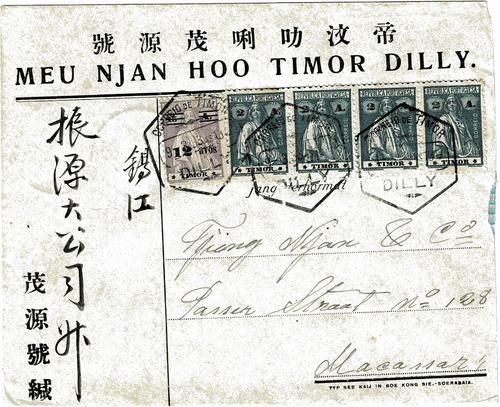 號源茂唎叻汶帝
MEU NJAN HOO TIMOR DILLY.
振源大公司升
錫江
茂源號緘
REPUBLICA PORTUGUESA
REPUBLICA PORTUGUESA
REPUBLICA PORTUGUESA
REPUBLICA PORTUGUESA
2 A.
2 A.
2 A.
2 A.
12 AVOS
TIMOR
TIMOR
TIMOR
TIMOR
TIMOR
CORREIO DE TIMOR
CORREIO DE TIMOR
DILLY
DILLY
jang terhormat
Njan & Co
Passer Straat No 128
Macassar
TYP SEE KAIJ IN BOE KONG SIE.-SOERABAIA.